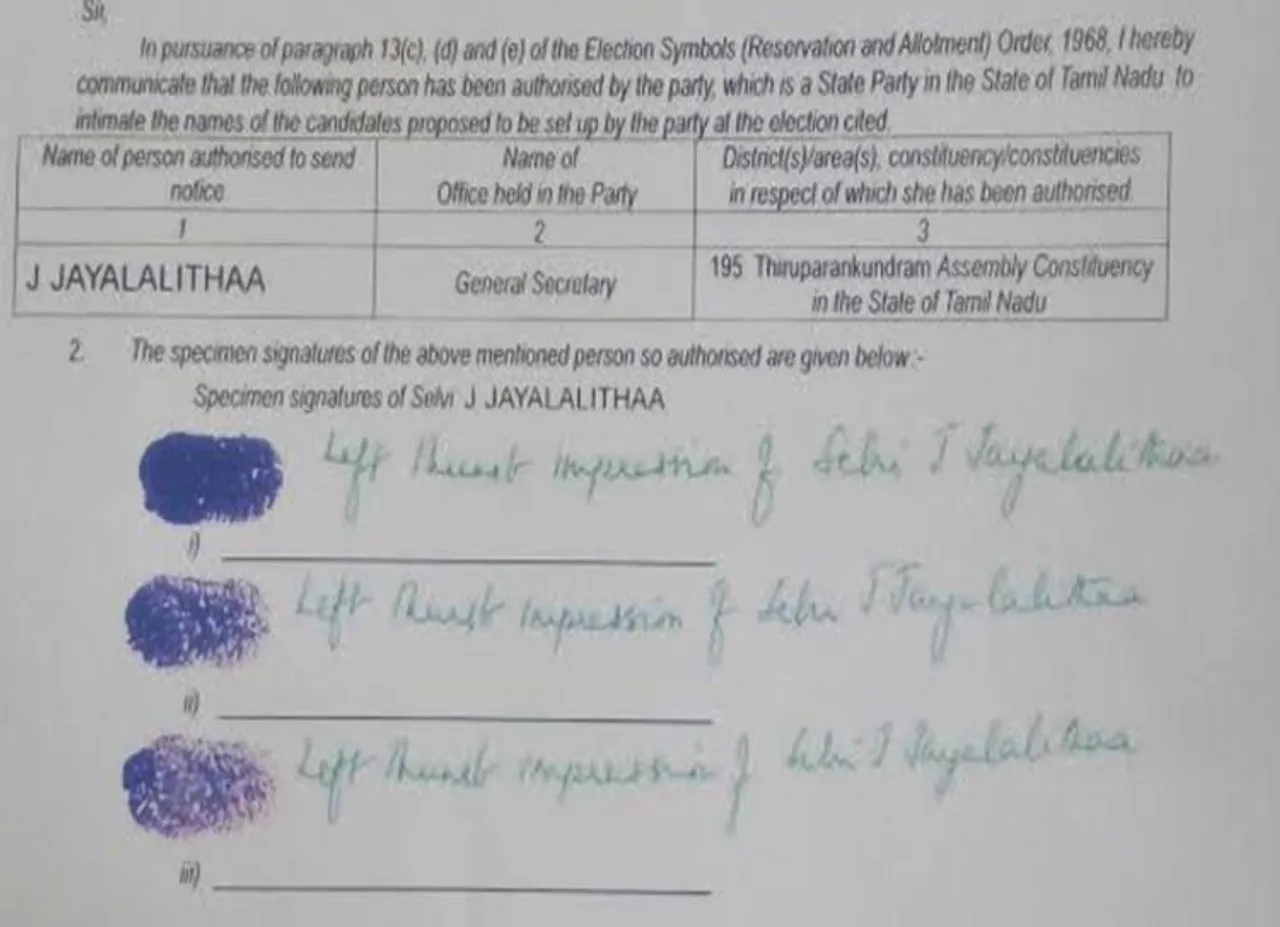 Sir,
In pursuance of paragraph 13(c), (d) and (e) of the Election Symbols (Reservation and Allotment) Order, 1968, I hereby
communicate that the following person has been authorised by the party, which is a State Party in the State of Tamil Nadu to
intimate the names of the candidates proposed to be set up by the party at the election cited.
Name of person authorised to send
notice
Name of
Office held in the Party
District(s)/area(s), constituency/constituencies
in respect of which she has been authorised.
1
2
3
J JAYALALITHAA
General Secretary
195 Thiruparankundram Assembly Constituency
in the State of Tamil Nadu
2. The specimen signatures of the above mentioned person so authorised are given below:-
Specimen signatures of Selvi J JAYALALITHAA
Left Thumb impression of Selvi J Jayalalithaa
i)
Left Thumb impression of Selvi J Jayalalithaa
ii)
Left Thumb impression of Selvi J Jayalalithaa
iii)